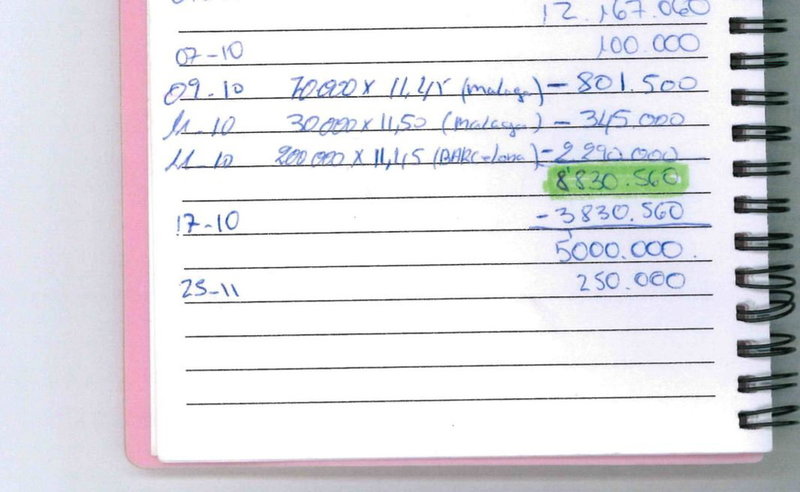 12.167.060
07-10 100.000
09-10 70000 x 11,45 (malaga) - 801.500
11-10 30000 x 11,50 (malaga) - 345.000
11-10 200000 x 11,45 (BARcelona) - 2.290.000
8'830.560
17-10 - 3830.560
5000.000.
25-11 250.000